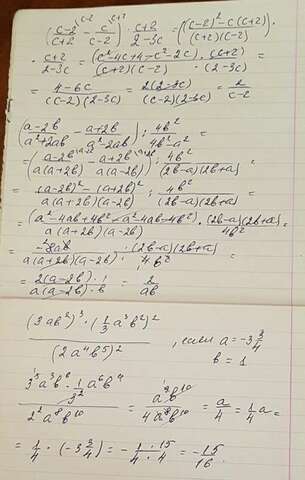 ((c-2)/(c+2) - c/(c-2)) · (c+2)/(2-3c) = ((c-2)²-c(c+2))/((c+2)(c-2)) ·
· (c+2)/(2-3c) = (c²-4c+4-c²-2c)/((c+2)(c-2)) · (c+2)/(2-3c) =
= (4-6c)/((c-2)(2-3c)) = 2(2-3c)/((c-2)(2-3c)) = 2/(c-2)
((a-2b)/(a²+2ab) - (a+2b)/(a²-2ab)) : 4b²/(4b²-a²) =
= ((a-2b)/(a(a+2b)) - (a+2b)/(a(a-2b))) : 4b²/((2b-a)(2b+a)) =
= ((a-2b)²-(a+2b)²)/(a(a+2b)(a-2b)) : 4b²/((2b-a)(2b+a)) =
= (a²-4ab+4b²-a²-4ab-4b²)/(a(a+2b)(a-2b)) · (2b-a)(2b+a)/4b² =
= -8ab/(a(a+2b)(a-2b)) · (2b-a)(2b+a)/4b² =
= 2(a-2b)·1/(a(a-2b)·b) = 2/ab
(3ab²)³ · (1/3 a³b²)² / (2a⁴b⁵)² , если a=-3 3/4
b=1
3³a³b⁶ · 1/3² a⁶b⁴ / 2²a⁸b¹⁰ = a⁹b¹⁰/4a⁸b¹⁰ = a/4 = 1/4 a =
= 1/4 · (-3 3/4) = - 1·15/4·4 = -15/16.